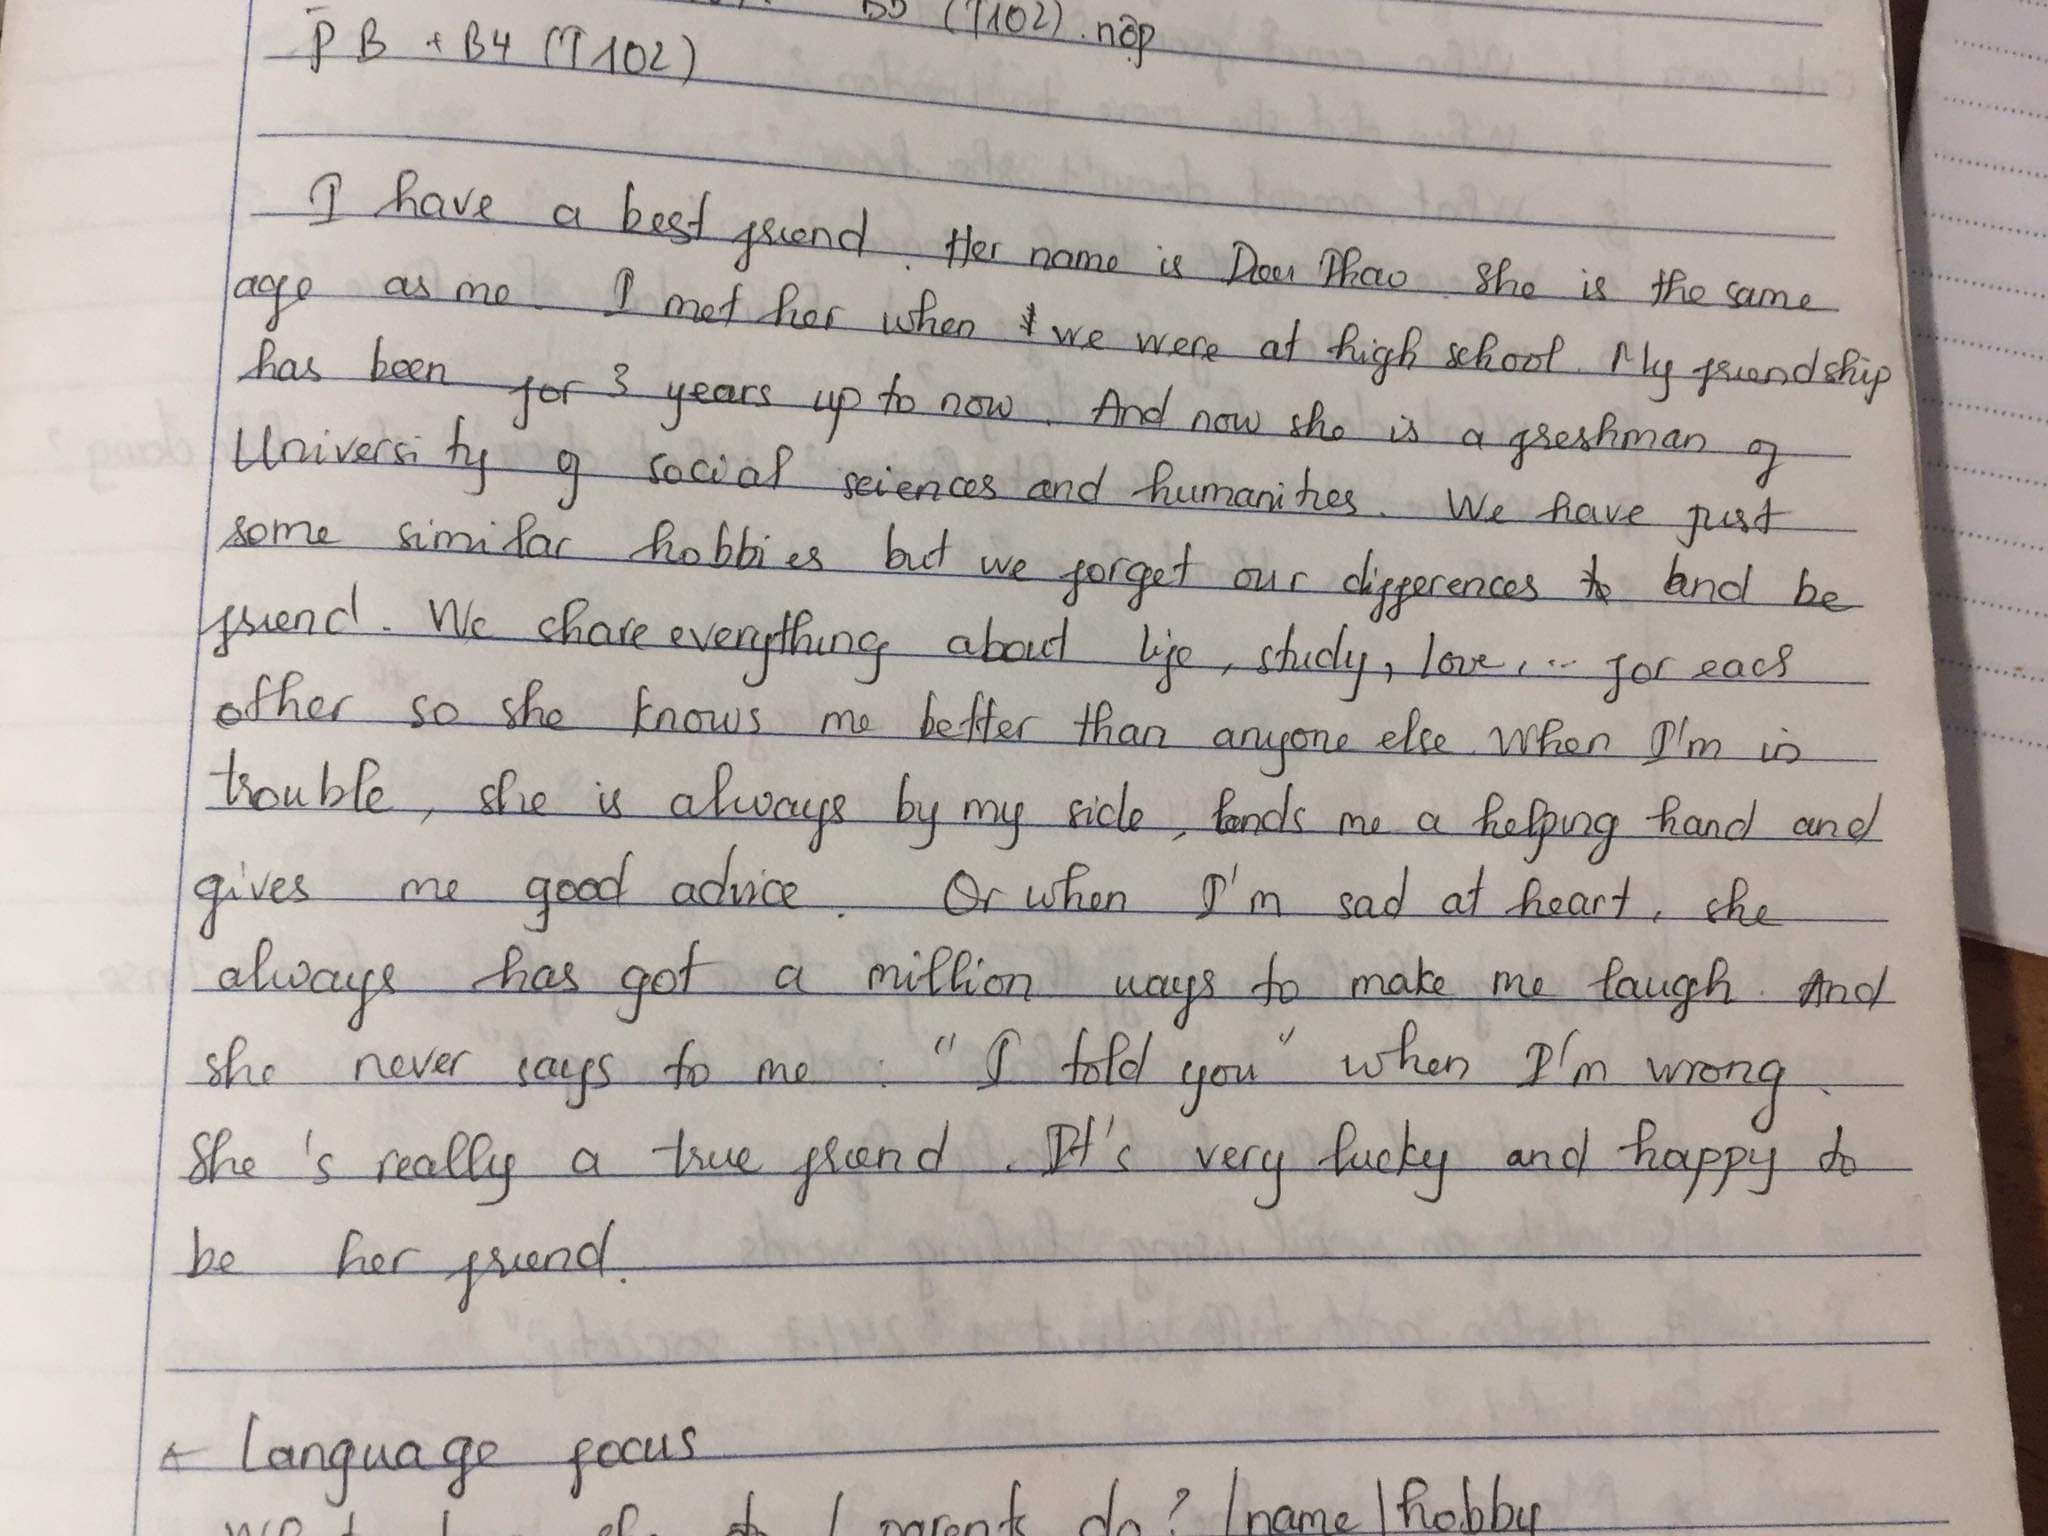 B5 (T102). nộp
PB + B4 (T102)
I have a best friend. Her name is Dieu Thao. She is the same
age as me. I met her when we were at high school. My friendship
has been for 3 years up to now. And now she is a freshman of
University of social sciences and humanities. We have just
some similar hobbies but we forget our differences and be
friend. We share everything about life, study, love,... for each
other so she knows me better than anyone else. When I'm in
trouble, she is always by my side, lends me a helping hand and
gives me good advice. Or when I'm sad at heart, she
always has got a million ways to make me laugh. And
she never says to me : "I told you" when I'm wrong.
She's really a true friend. It's very lucky and happy to
be her friend.
Language focus
parents do? / name / hobby